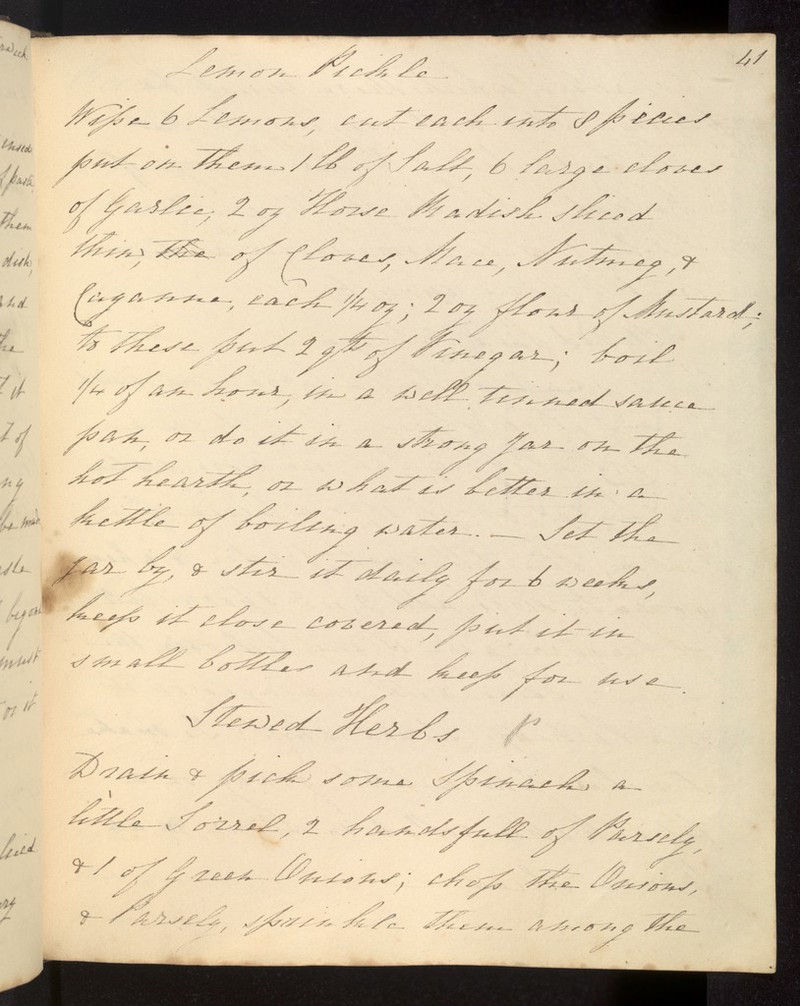 41
Lemon Pickle
Wipe 6 Lemons, cut each into 8 pieces
put on them 1 lb of Salt, 6 large cloves
of Garlic, 2 oz Horse Radish sliced
thin, the of Cloves, Mace, Nutmeg, &
Cayanne, each 1/4 oz; 2 oz flour of Mustard;
to these put 2 qts of Vinegar; boil
1/4 of an hour, in a well tinned sauce
pan, or do it in a strong Jar on the
hot hearth, or what is better in a
kettle of boiling water. — Set the
jar by, & stir it daily for 6 weeks,
keep it close covered, put it in
small bottles and keep for use.
Stewed Herbs
Drain & pick some Spinach a
little Sorrel, 2 handsfull of Parsely,
& 1 of Green Onions; chop the Onions,
& Parsely, sprinkle them among the